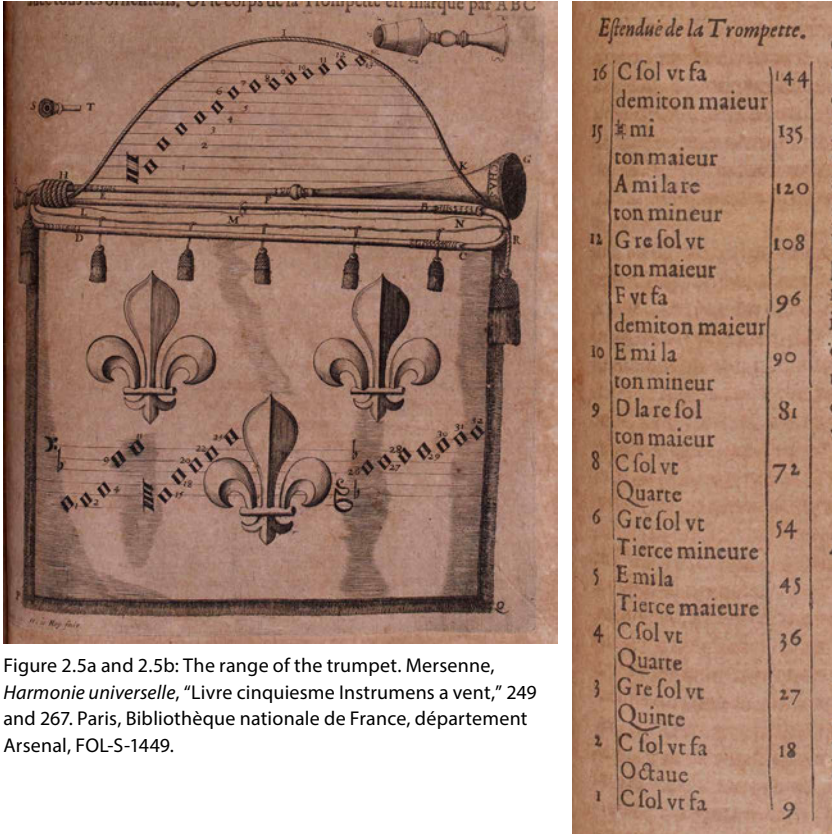 tous les ornemens, Or le corps de la Trompette eſt marqué par A B C
I
S T
H
K
G
E
F
L
M
B
N
D
C
R
P
Q
Figure 2.5a and 2.5b: The range of the trumpet. Mersenne,
Harmonie universelle, “Livre cinquiesme Instrumens a vent,” 249
and 267. Paris, Bibliothèque nationale de France, département
Arsenal, FOL-S-1449.
Eſtenduë de la Trompette.
16 C ſol vt fa 144
demiton maieur
15 ♮ mi 135
ton maieur
A mi la re 120
ton mineur
12 G re ſol vt 108
ton maieur
F vt fa 96
demiton maieur
10 E mi la 90
ton mineur
9 D la re ſol 81
ton maieur
8 C ſol vt 72
Quarte
6 G re ſol vt 54
Tierce mineure
5 E mi la 45
Tierce maieure
4 C ſol vt 36
Quarte
3 G re ſol vt 27
Quinte
2 C ſol vt fa 18
Octaue
1 C ſol vt fa 9